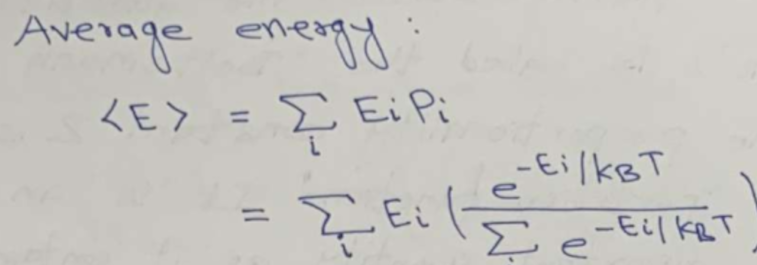 Average energy :
<E> = ∑_i Ei Pi
= ∑_i Ei ( e^{-Ei/kBT} / ∑_i e^{-Ei/kBT} )